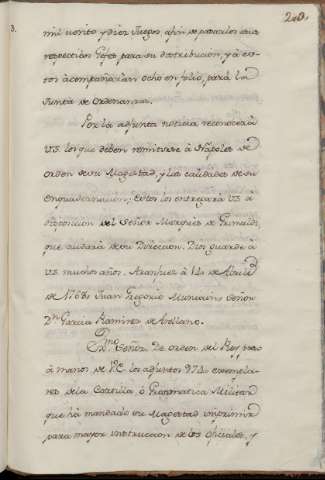 240.
3.
mil ciento y diez Juegos afin de pasarlos a sus
respectivos Gefes para su distribucion, y á es-
tos acompañarán ocho en folio, para la
Junta de Ordenanzas.
Por la adjunta noticia reconocerá
VS. los que deben remitirse á Napoles de
orden de su Magestad, y las calidades de su
enquadernacion; Estos los entregará VS. á
disposicion del Señor Marqués de Grimaldi,
que cuidará de su Direccion. Dios guarde á
VS. muchos años. Aranjuez á 14 de Abril
de 1768. Juan Gregorio Muniain = Señor
Dn. Garcia Ramirez de Arellano.
Exmo. Señor. De orden del Rey, paso
á manos de VE. los adjuntos 974 exempla-
res de la Cartilla ó Prematica Militar
que há mandado su Magestad imprimir
para mayor instruccion de los oficiales, y